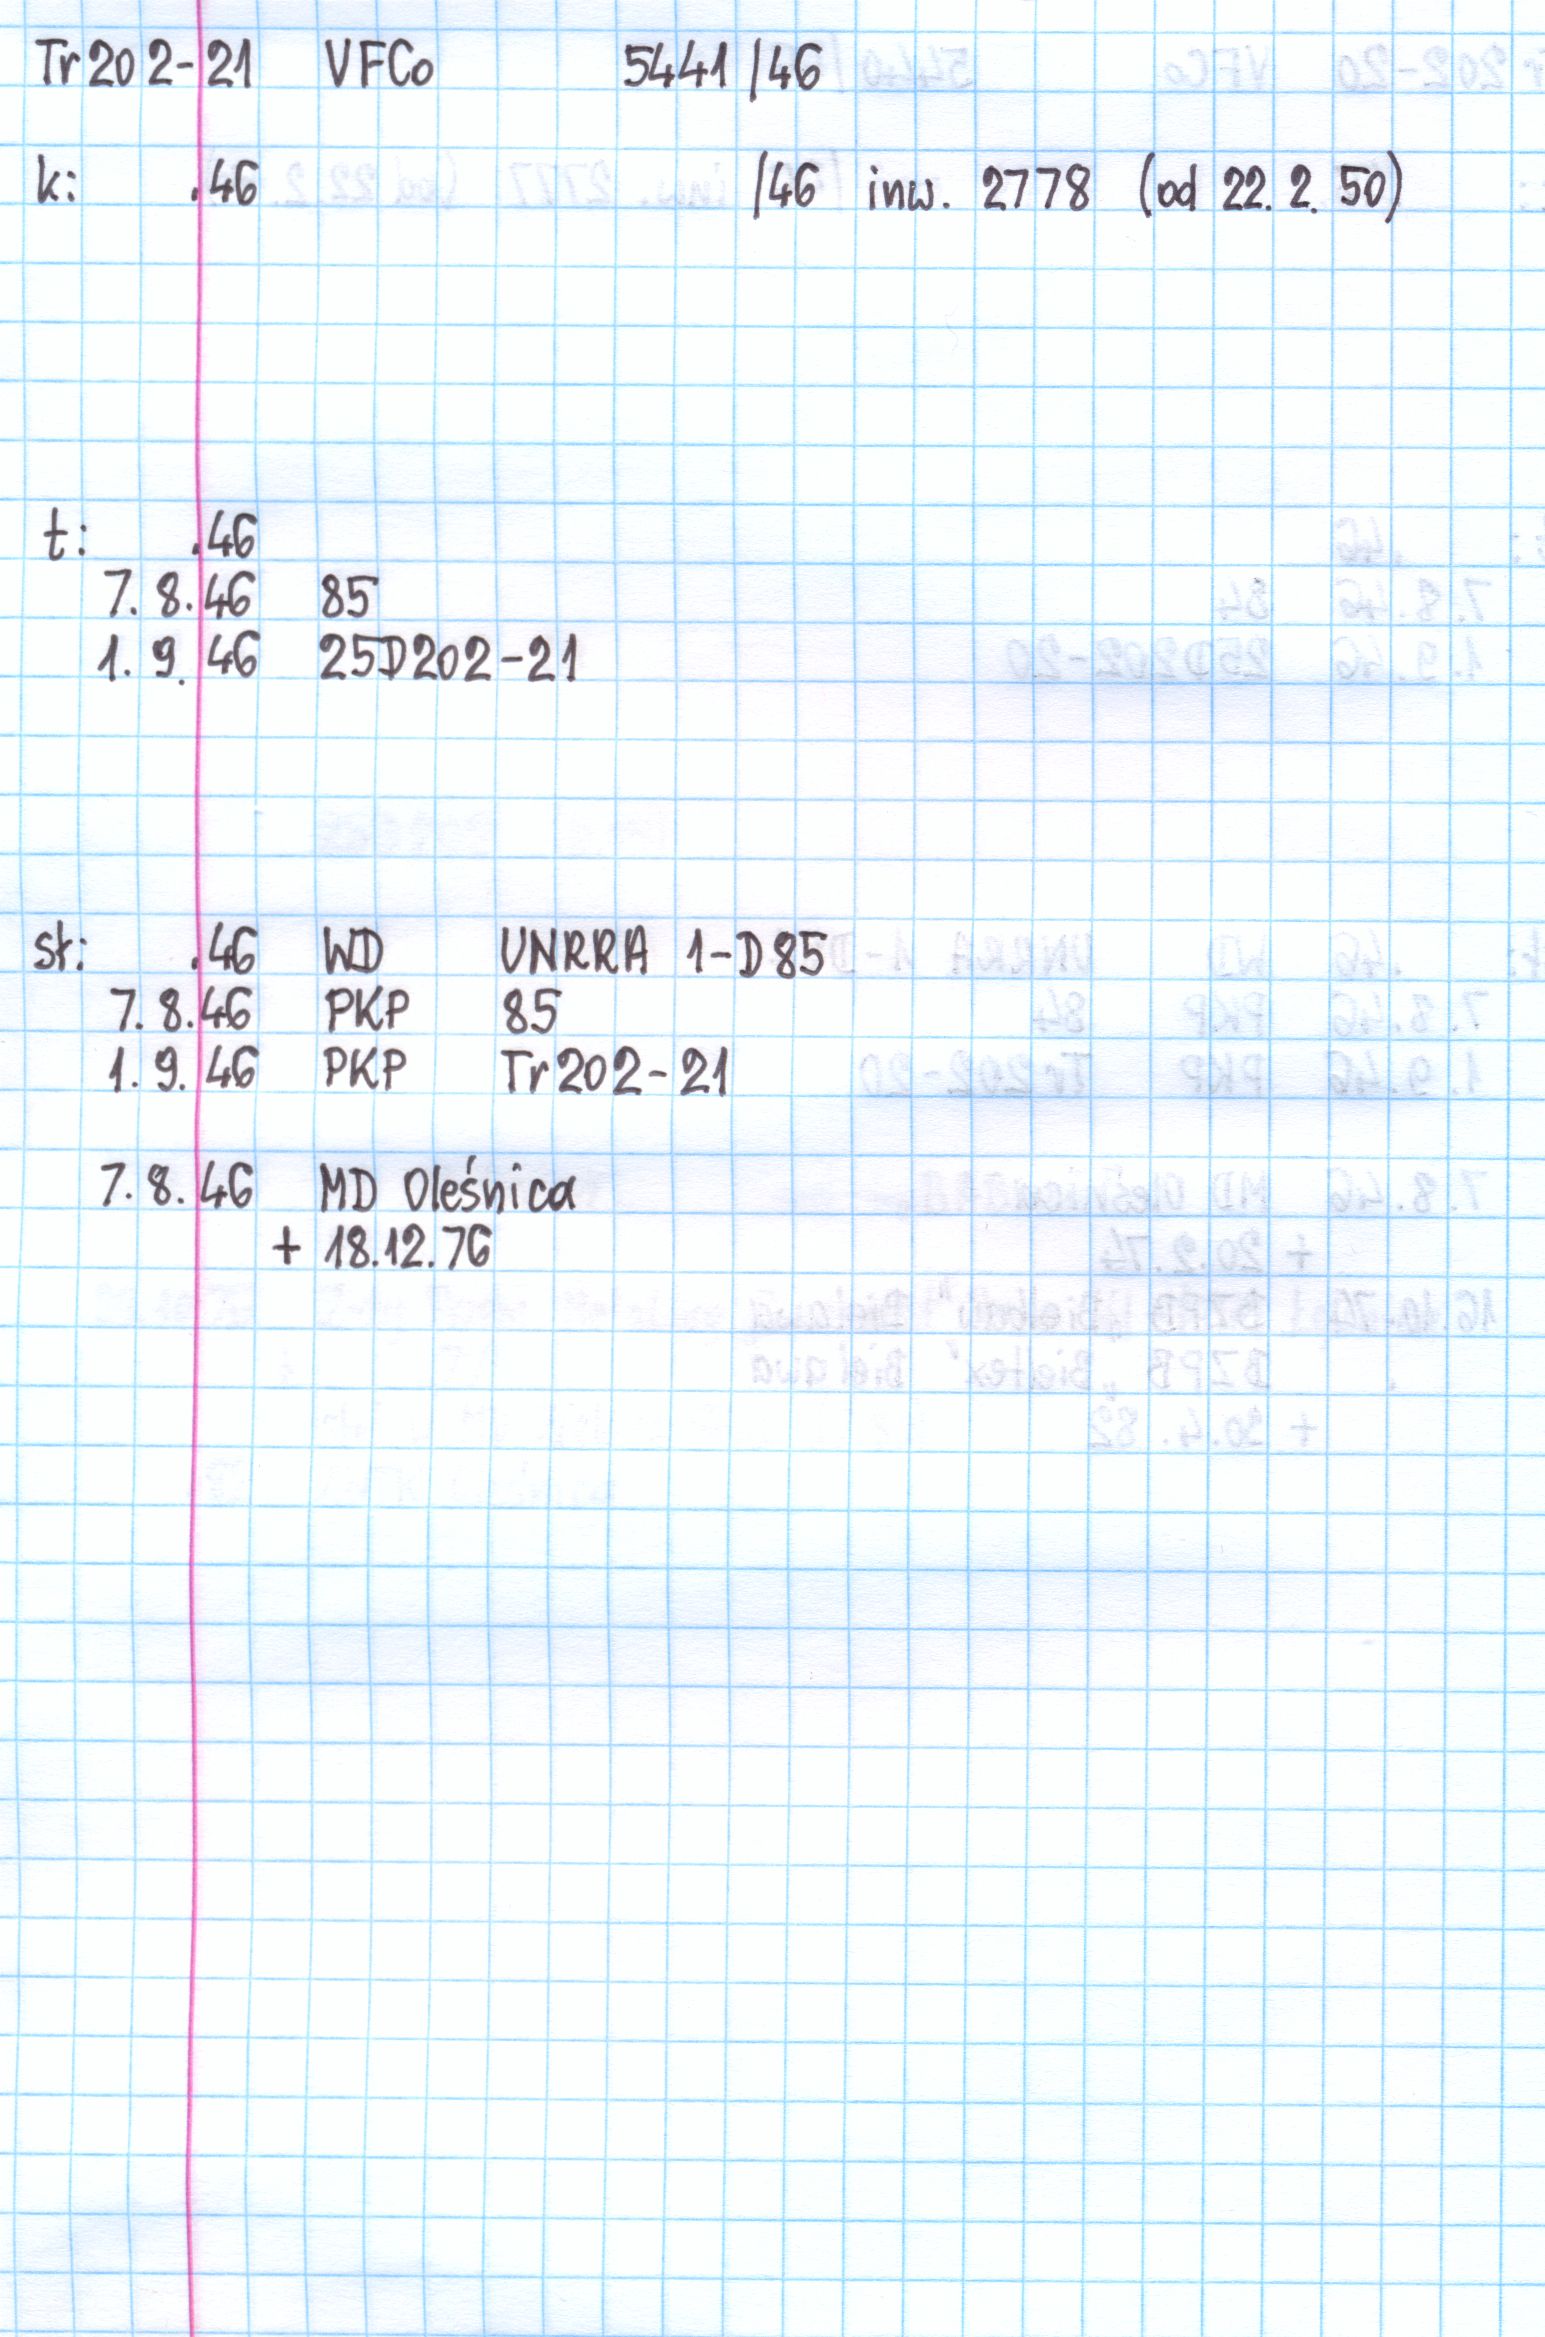 Tr202-21 VFCo 5441/46
k: .46 /46 inw. 2778 (od 22.2.50)
t: .46
7.8.46 85
1.9.46 25D202-21
st: .46 WD UNRRA 1-D85
7.8.46 PKP 85
1.9.46 PKP Tr202-21
7.8.46 MD Oleśnica
+ 18.12.76